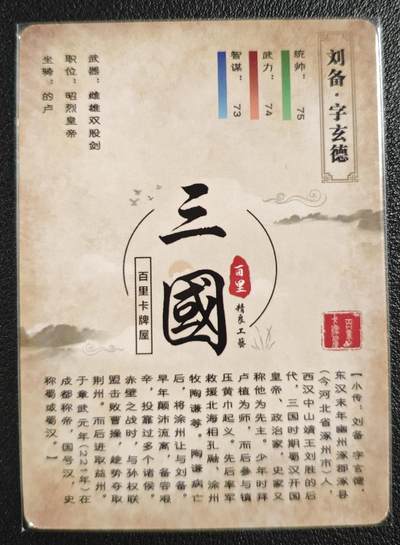 刘备·字玄德
统帅：75
武力：74
智谋：73
武器：雌雄双股剑
职位：昭烈皇帝
坐骑：的卢
三國
百里
精良工艺
百里卡牌屋
【小传：刘备 字玄德，
东汉末年幽州涿郡涿县
（今河北省涿州市）人，
西汉中山靖王刘胜的后
代，三国时期蜀汉开国
皇帝、政治家，史家又
称他为先主。少年时拜
卢植为师，而后参与镇
压黄巾起义。先后率军
救援北海相孔融、徐州
牧陶谦等。陶谦病亡
后，将徐州让与刘备。
早年颠沛流离，备尝艰
辛，投靠过多个诸侯。
赤壁之战时，与孙权联
盟击败曹操，趁势夺取
荆州。而后进取益州。
于章武元年（221年）在
成都称帝，国号汉，史
称蜀或蜀汉。】